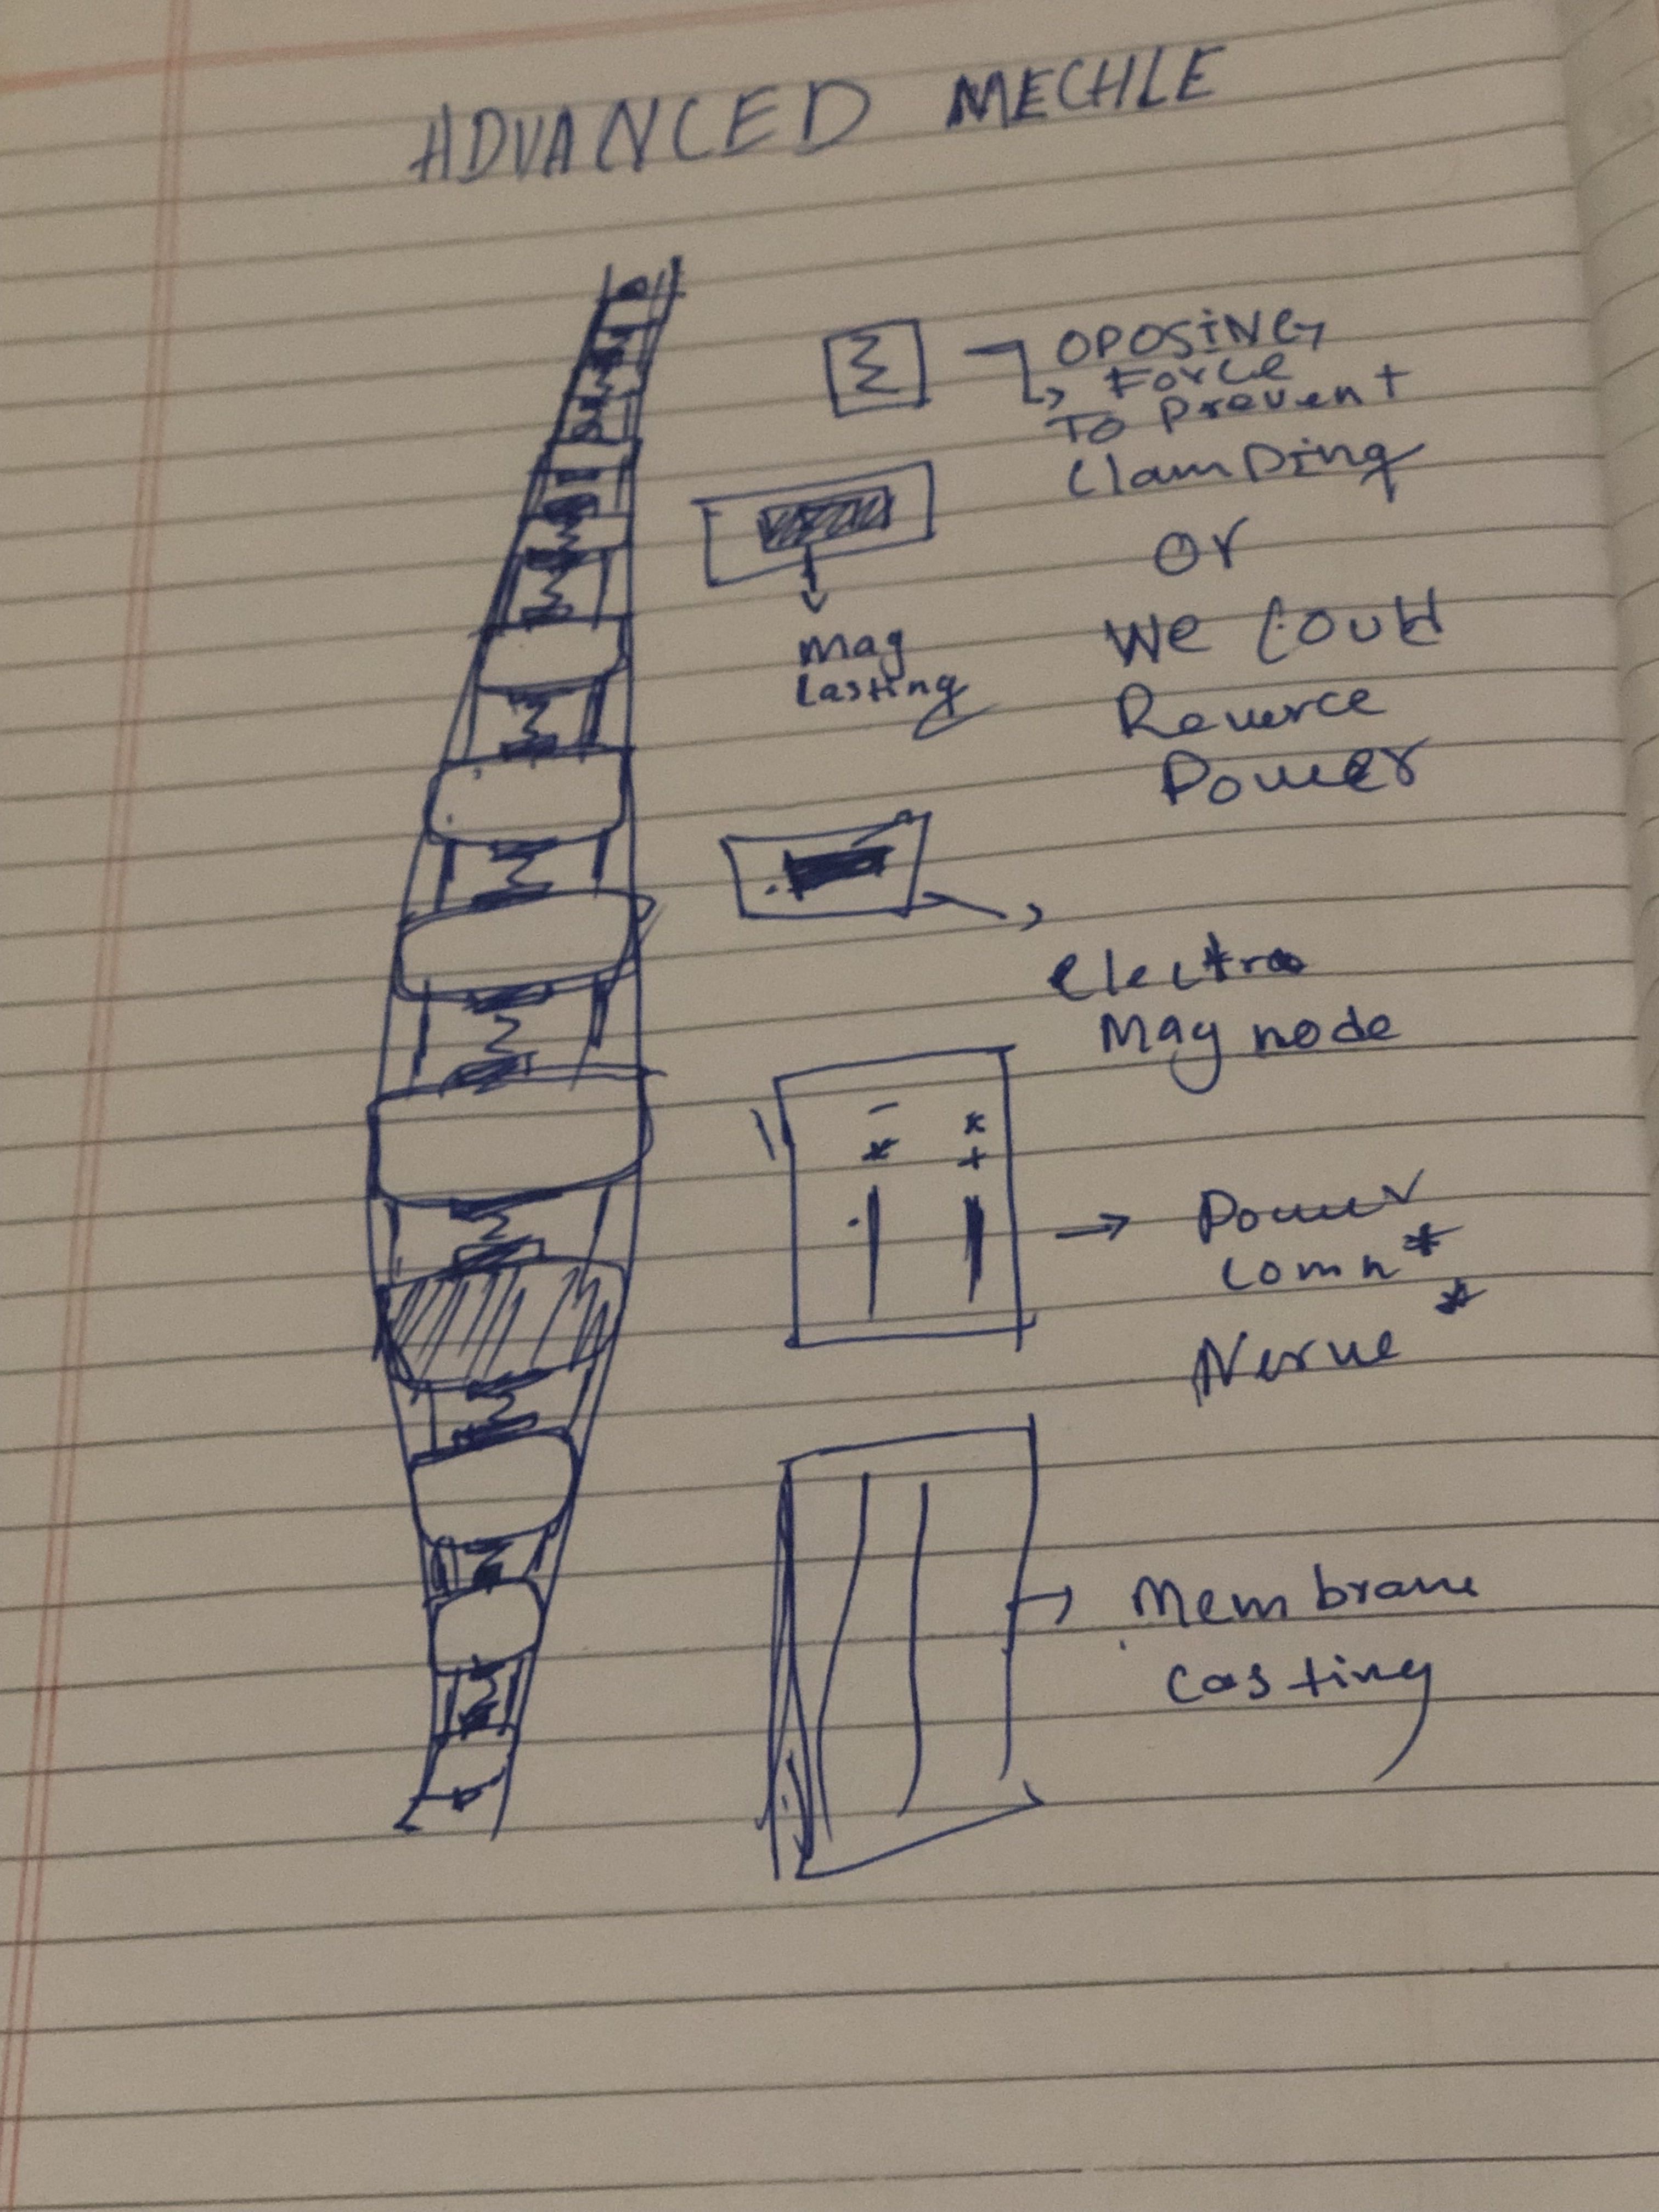 ADVANCED MECHLE
OPOSING
Force
To Prevent
Clamping
or
We Could
Reverce
Power
mag
Casting
electro
Mag node
- *
* +
Power
Comn *
*
Nerve
Membrane
Casting